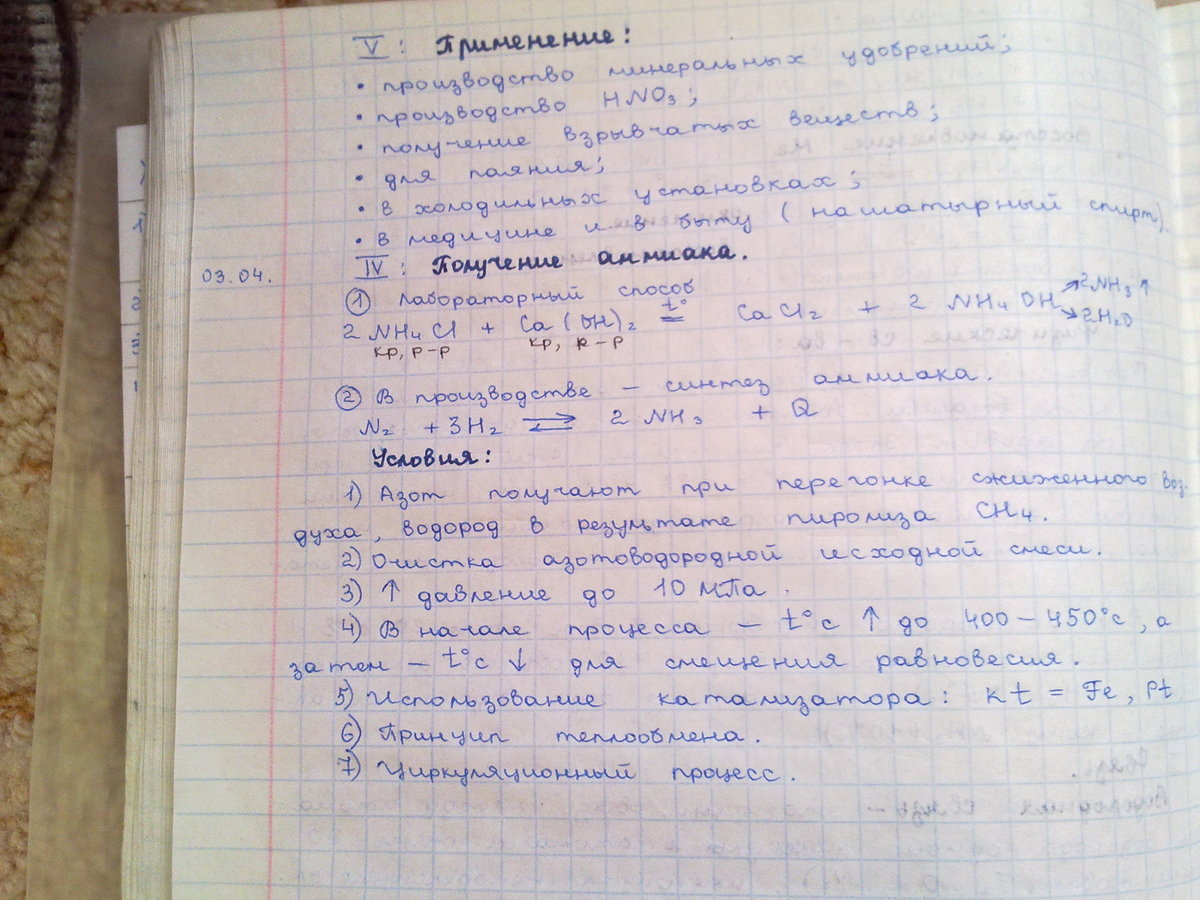 V : Применение:
• производство минеральных удобрений;
• производство HNO₃;
• получение взрывчатых веществ;
• для паяния;
• в холодильных установках;
• в медицине и в быту (нашатырный спирт).
03.04. IV : Получение аммиака.
① Лабораторный способ
2 NH₄Cl + Ca(OH)₂ t°= CaCl₂ + 2 NH₄OH ↗ 2NH₃↑ ↘ 2H₂O
кр, р-р кр, р-р
② В производстве – синтез аммиака.
N₂ + 3H₂ ⇄ 2 NH₃ + Q
Условия:
1) Азот получают при перегонке сжиженного воз-
духа, водород в результате пиролиза CH₄.
2) Очистка азотоводородной исходной смеси.
3) ↑ давление до 10 МПа.
4) В начале процесса – t°c ↑ до 400 – 450°c, а
затем – t°c ↓ для смещения равновесия.
5) Использование катализатора: kt = Fe, Pt
6) Принцип теплообмена.
7) Циркуляционный процесс.